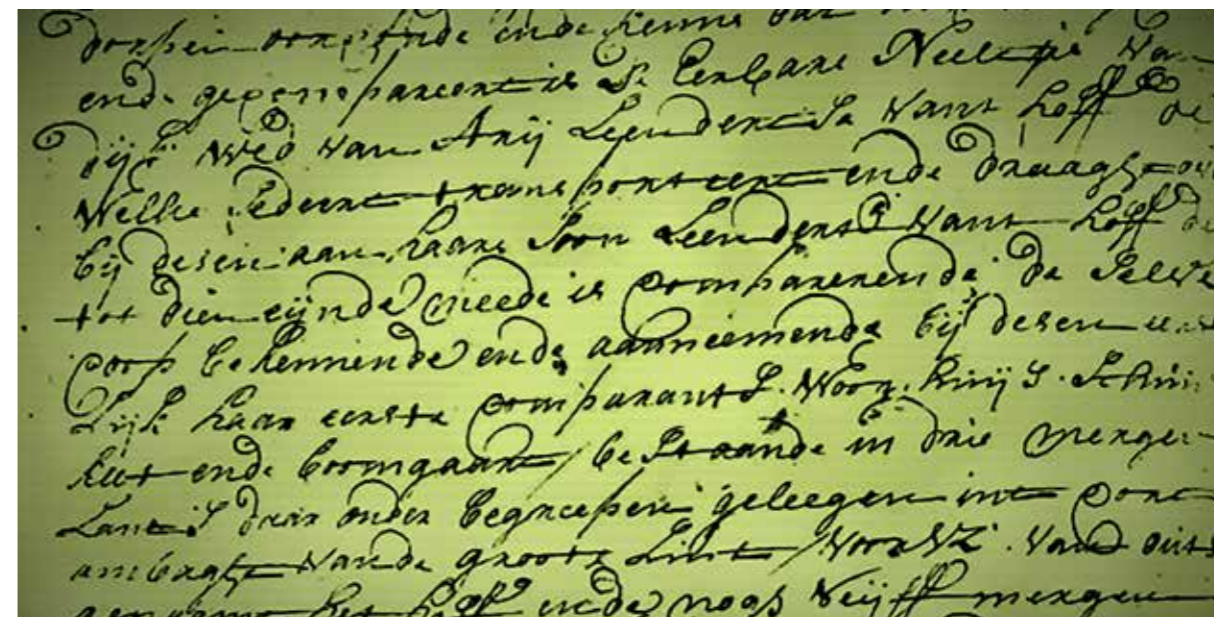 oorconde ende kenne dat
ende gecompareert is de Eerbare Neeltje Van
dijck Wed van Arij Leenderts Vant hoff de
Welke sedeert transporteert ende draaght
bij desen aan haare Soon Leendert Vant hoff de
tot dien eijnde meede is Comparerende de Selve
Coop bekennende ende aanneemende bij desen
Lijk haar eerste Comparants Woon. huijs. Schuir
ende boomgaart / bestaande in drie mergen
Lants daar onder begreepen geleegen int
ambaght Vande groote Lint / Voorsz. Vand
het hoff ende nogh Veijff mergen